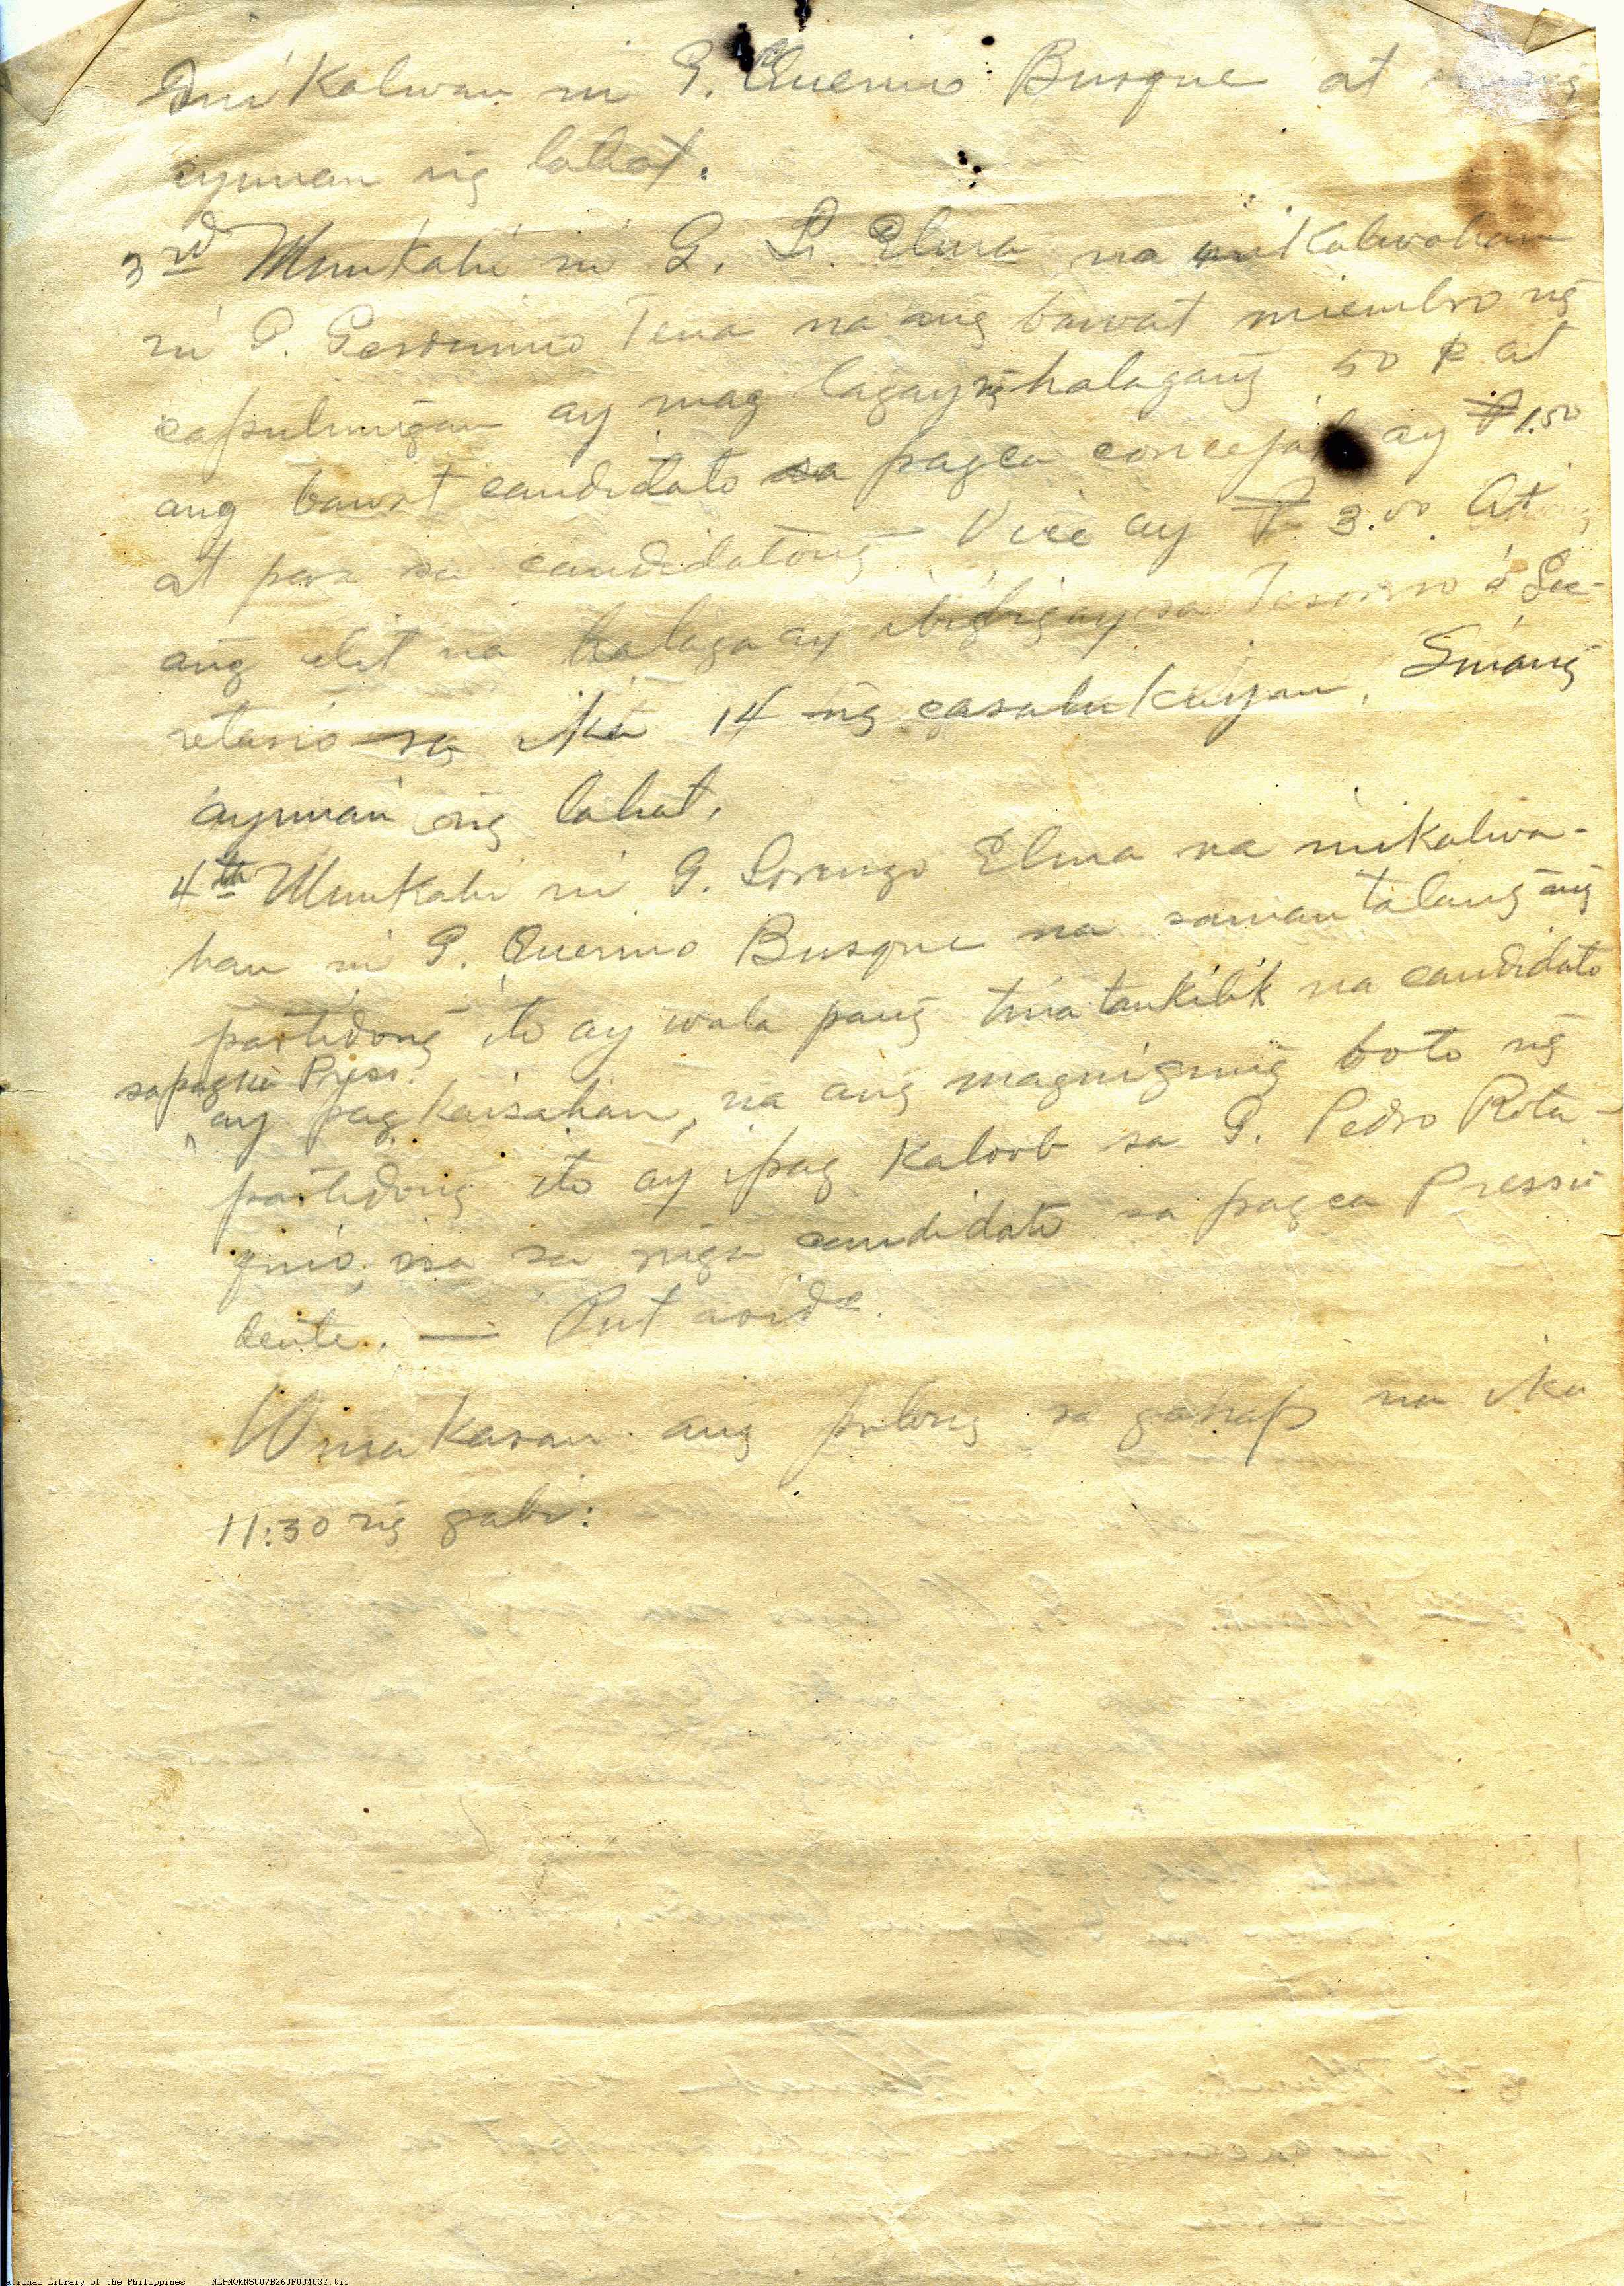 Inikalwan ni G. Querino Busque at
ayunan ng lahat.
3rd Munkahi ni G. L. Elma na inikalwahan
ni G. Geronimo Tena na ang bawat miembro ng
capulungan ay mag lagay ng halagang 50 ¢ at
ang bawat candidato sa pagca concejal ay ₱1.50
at para sa candidatong Vice ay ₱ 3.00. At
ang ulit na halaga ay ibibigay sa Tesorero ó Sec-
retario sa ika 14 ng casalukuyan. Sinang
ayunan ng lahat.
4th Munkahi ni G. Lorenzo Elma na inikalwa-
han ni G. Querino Busque na samantalang ang
partidong ito ay wala pang tinatankilik na candidato
sa pagka Pres.
ay pagkaisahan, na ang magniging boto ng
partidong ito ay ipag kaloob sa G. Pedro Rita-
quio, isa sa mga candidato sa pagca Pressi
dente. — Put aside.
Winakasan ang pulong sa ganap na ika
11:30 ng gabi:
National Library of the Philippines NLPMQMNS007B260F004032.tif